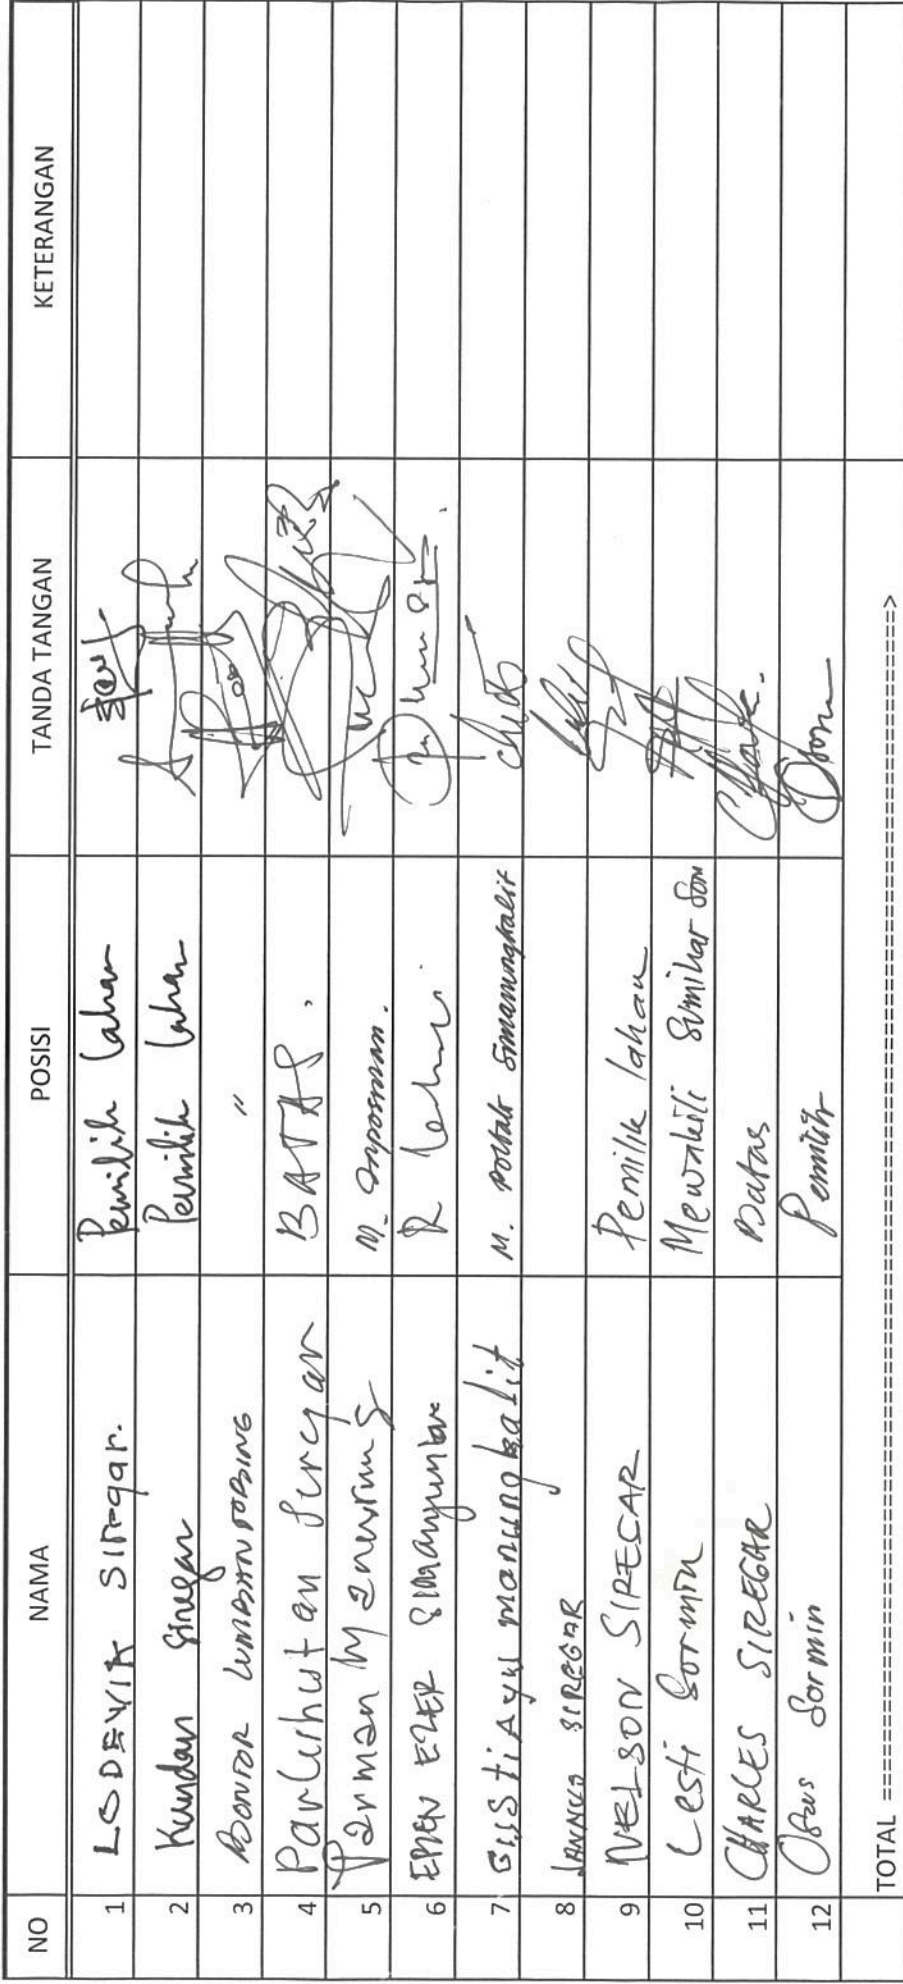 NO NAMA POSISI TANDA TANGAN KETERANGAN
1 LODEWIK SIREGAR. Pemilik Lahan
2 Kundan Siregar Pemilik Lahan
3 BONTOR LUMBANTOBING "
4 Parluhutan Siregar BATAS.
5 Parman M.
6 EBEN EZER
7 GUSTi Ayu manungkalit M. Simanungkalit
8 SIREGAR
9 NELSON SIREGAR Pemilik lahan
10 Lesti Sormin Mewakili Sumihar Sor
11 CHARLES SIREGAR Batas
12 Sormin Pemilik
TOTAL ==================================================>